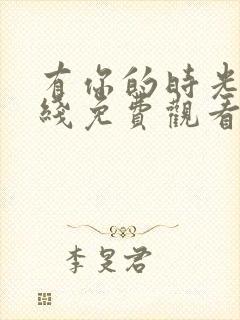 有你的時光
綫免費觀看
李旻君